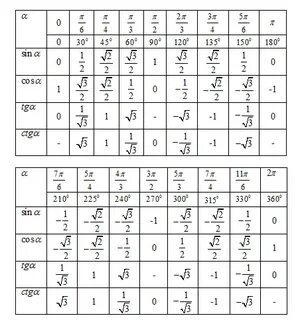 α 0 π/6 π/4 π/3 π/2 2π/3 3π/4 5π/6 π
0 30⁰ 45⁰ 60⁰ 90⁰ 120⁰ 135⁰ 150⁰ 180⁰
sin α 0 1/2 √2/2 √3/2 1 √3/2 √2/2 1/2 0
cos α 1 √3/2 √2/2 1/2 0 -1/2 -√2/2 -√3/2 -1
tgα 0 1/√3 1 √3 - -√3 -1 -1/√3 0
ctgα - √3 1 1/√3 0 -1/√3 -1 -√3 -
α 7π/6 5π/4 4π/3 3π/2 5π/3 7π/4 11π/6 2π
210⁰ 225⁰ 240⁰ 270⁰ 300⁰ 315⁰ 330⁰ 360⁰
sin α -1/2 -√2/2 -√3/2 -1 -√3/2 -√2/2 -1/2 0
cos α -√3/2 -√2/2 -1/2 0 1/2 √2/2 √3/2 1
tgα 1/√3 1 √3 - -√3 -1 -1/√3 0
ctgα √3 1 1/√3 0 -1/√3 -1 -√3 -